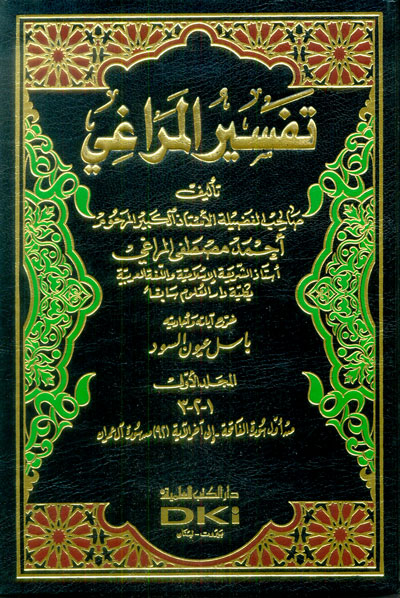 تَفسير المَراغي
تأليف
صاحب الفضيلة الأستاذ الكبير المرحوم
أحمد مصطفى المراغي
أستاذ الشريعة الإسلامية واللغة العربية
بكلية دار العلوم سابقاً
خرج آياته وأحاديثه
باسل عيون السود
المجلد الأول
١-٢-٣
من أول سورة الفاتحة - إلى آخر الآية (٩٢) من سورة آل عمران
دار الكتب العلمية
DKi
بيروت - لبنان